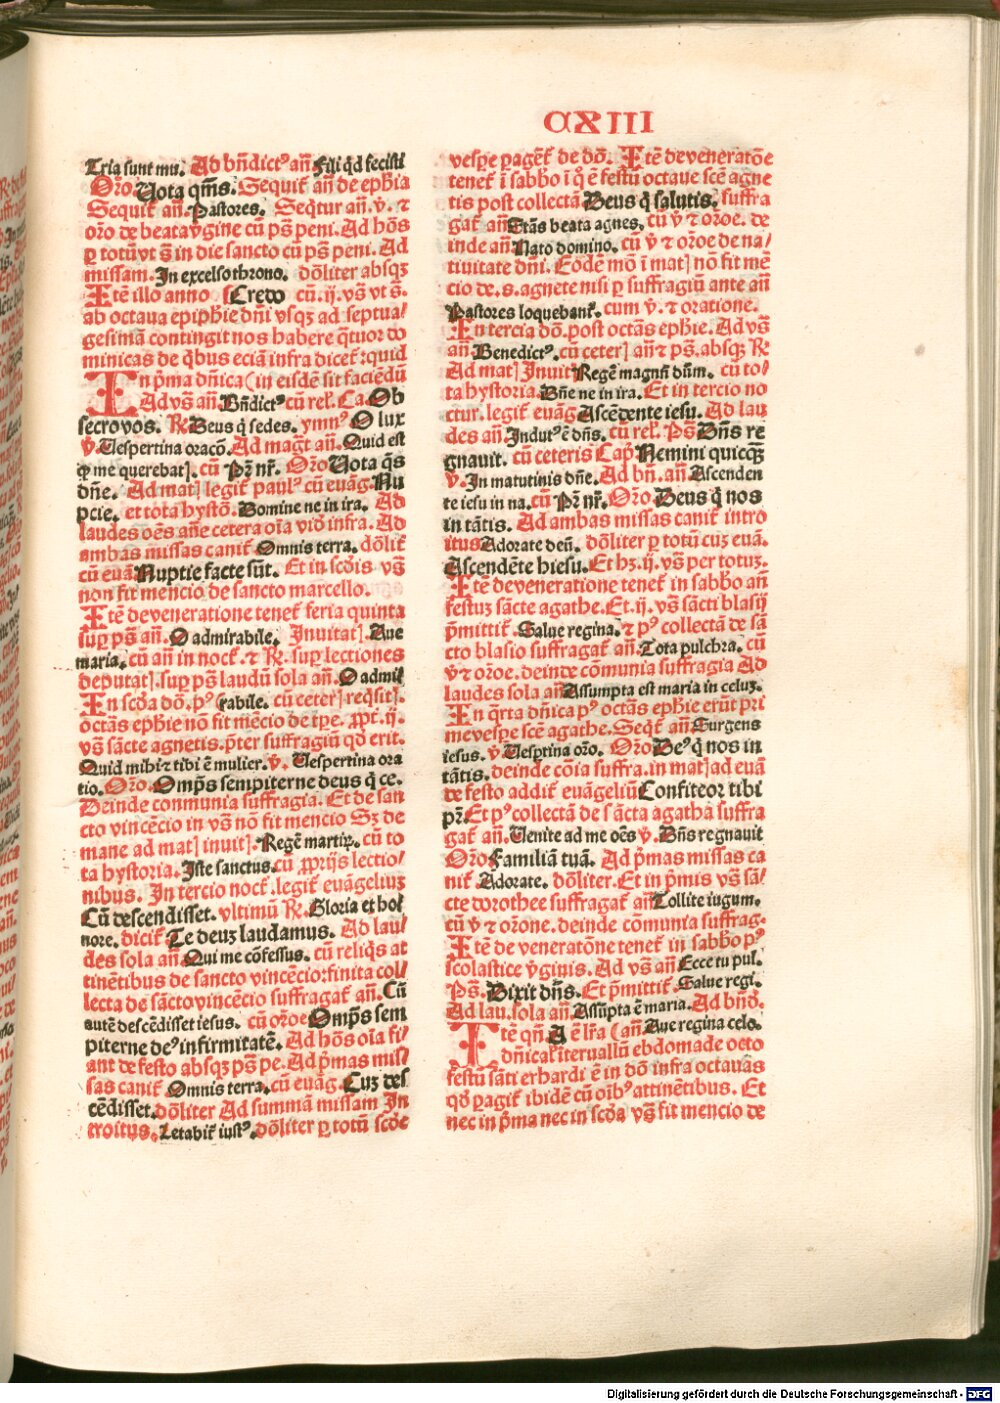 CXIII
Tria sunt mu. Ad bn̄dictꝰ an̄ Fili qd̄ fecisti
Or̄o Uota qm̄s. Sequit̄ an̄ de ephīa
Sequit̄ an̄. Pastores. Seqͥtur an̄. v̄. ⁊
or̄o de beata vg̃ine cū ps̄ peni. Ad hōs
ꝑ totū vt s̄ in die sancto cū ps̄ peni. Ad
missam. In excelso throno. dōliter absqꝫ
Itē illo anno Credo cū. ij. vs̄ vt s̄.
ab octaua epiphīe dn̄i vsqꝫ ad septua/
gesimā contingit nos habere qͣtuor do
minicas de qͥbus eciā infra dicet̄ : quid
In pͥma dn̄ica (in eisdē sit faciēdū
Ad vs̄ an̄. Bn̄dictꝰ cū rel̄. Ca. Ob
secro vos. ꝶ Deus q̄ sedes. ymnꝰ O lux
v̄. Uespertina oracō. Ad magt̄ an̄. Quid est
ꝙ me querebat]. cū Pr̄ nr̄. Or̄o Uota qͣs
dn̄e. Ad mat] legit̄ paulꝰ cū euāg. Nu
pcie. et tota hystō. Domine ne in ira. Ad
laudes oēs an̄e cetera oīa vīo infra. Ad
ambas missas canit̄ Omnis terra. dōlit̄
cū euā Nuptie facte sūt. Et in scd̄is vs̄
non fit mencio de sancto marcello.
Itē de veneratione tenet̄ feria quinta
suꝑ ps̄ an̄. O admirabile. Inuitat]. Aue
maria. cū an̄ in noct̄. ⁊ ꝶ. suꝑ lectiones
deputat]. suꝑ ps̄ laudū sola an̄. O admi/
In scd̄a dō. pꝰ (rabile. cū ceter] reqͥsit].
octās ephīe nō fit mēcio de tꝑe. ꝓpt̄. ij.
vs̄ sācte agnetis. p̄ter suffragiū qd̄ erit.
Quid mihi ⁊ tibi ē mulier. v̄. Uespertina ora
tio. Or̄o. Omp̄s sempiterne deus q̄ ce.
Deinde conmunia suffragia. Et de san
cto vincēcio in vs̄ nō fit mencio Sꝫ de
mane ad mat] inuit]. Regē martiꝝ. cū to
ta hystoria. Iste sanctus. cū ꝓprijs lectio/
nibus. In tercio noct̄. legit̄ euāgeliuꝫ
Cū descendisset. vltimū ꝶ. Gloria et ho/
nore. dicit̄ Te deuꝫ laudamus. Ad lau/
des sola an̄. Qui me cōfessus. cū reliqͥs at
tinētibus de sancto vincēcio: finita col/
lecta de sācto vincēcio suffragat̄ an̄. Cū
autē descēdisset iesus. cū or̄oe Omp̄s sem
piterne deꝰ infirmitatē. Ad hōs oīa fi/
ant de festo absqꝫ ps̄ pe. Ad pͥmas mis/
sas canit̄ Omnis terra. cū euāg. Cuꝫ des
cēdisset. dōliter Ad summā missam In
troitus. Letabit̄ iustꝰ. dōliter ꝑ totū scd̄e
vesꝑe pagēt̄ de dō. Itē de veneratōe
tenet̄ ī sabbō ī qͦ ē festū octaue scē agne
tis post collectā Deus q̄ salutis. suffra
gat̄ an̄ Stās beata agnes. cū v̄ ⁊ or̄oe. de
inde an̄ Nato domino. cū v̄ ⁊ or̄oe de na/
tiuitate dn̄i. Eodē mō ī mat] nō fit mē
cio de. s. agnete nisi ꝑ suffragiū ante an̄
Pastores loquebant̄. cum v̄. ⁊ oratione.
In tercia dō. post octās ephīe. Ad vs̄
an̄. Benedictꝰ. cū ceter] an̄ ⁊ ps̄. absqꝫ ꝶ
Ad mat] Inuit] Regē magnū dn̄m. cū to/
ta hystoria. Dn̄e ne in ira. Et in tercio no
ctur. legit̄ euāg Ascēdente iesu. Ad lau
des an̄. Indutꝰ ē dn̄s. cū rel̄. Ps̄ Dn̄s re
gnauit. cū ceteris Cap̄ Nemini quicqͣꝫ
v̄. In matutinis dn̄e. Ad bn̄. an̄ Ascenden
te iesu in na. cū Pr̄ nr̄. Or̄o Deus q̄ nos
in tātis. Ad ambas missas canit̄ intro
itus Adorate deū. dōliter ꝑ totū cuꝫ euā.
Ascendēte hiesu. Et hꝫ. ij. vs̄ per totuꝫ.
Itē de veneratione tenet̄ in sabbō an̄
festuꝫ sācte agathe. Et. ij. vs̄ sācti blasij
pͥmittit̄. Salue regina. ⁊ pꝰ collectā de sā
cto blasio suffragat̄ an̄. Tota pulchra. cū
v̄ ⁊ or̄oe. deinde cōmunia suffragia Ad
laudes sola an̄ Assumpta est maria in celuꝫ.
In qͣrta dn̄ica pꝰ octās ephīe erūt pri
me vespe scē agathe. Seqͥt̄ an̄ Surgens
iesus. v̄. Uesꝑtina or̄o. Or̄o Deꝰ q̄ nos in
tātis. deinde cōīa suffra. in mat] ad euā
de festo addit̄ euageliū Confiteor tibi
pr̄. Et pꝰ collectā de sācta agatha suffra
gat̄ an̄. Uenite ad me oēs v̄. Dn̄s regnauit
Or̄o Familiā tuā. Ad pͥmas missas ca
nit̄ Adorate. dōliter. Et in pͥmis vs̄ sā/
cte dorothee suffragat̄ an̄ Tollite iugum.
cū v̄ ⁊ or̄one. deinde cōmunia suffrag.
Itē de veneratōne tenet̄ in sabbō pꝰ
scolastice vg̃inis. Ad vs̄ an̄ Ecce tu pul.
Ps̄. Dixit dn̄s. Et pͥmittit̄. Salue regi.
Ad lau. sola an̄. Assūpta ē maria. Ad bn̄d̄.
Itē qn̄. A ē lr̄a (an̄. Aue regina celo.
dn̄ical̄ iteruallū ebdomade octo
festū sāti erhardi ē in dō infra octauas
qd̄ pagit̄ ibidē cū oībꝰ attinētibus. Et
nec in pͥma nec in scd̄a vs̄ fit mencio de
Digitalisierung gefördert durch die Deutsche Forschungsgemeinschaft - DFG